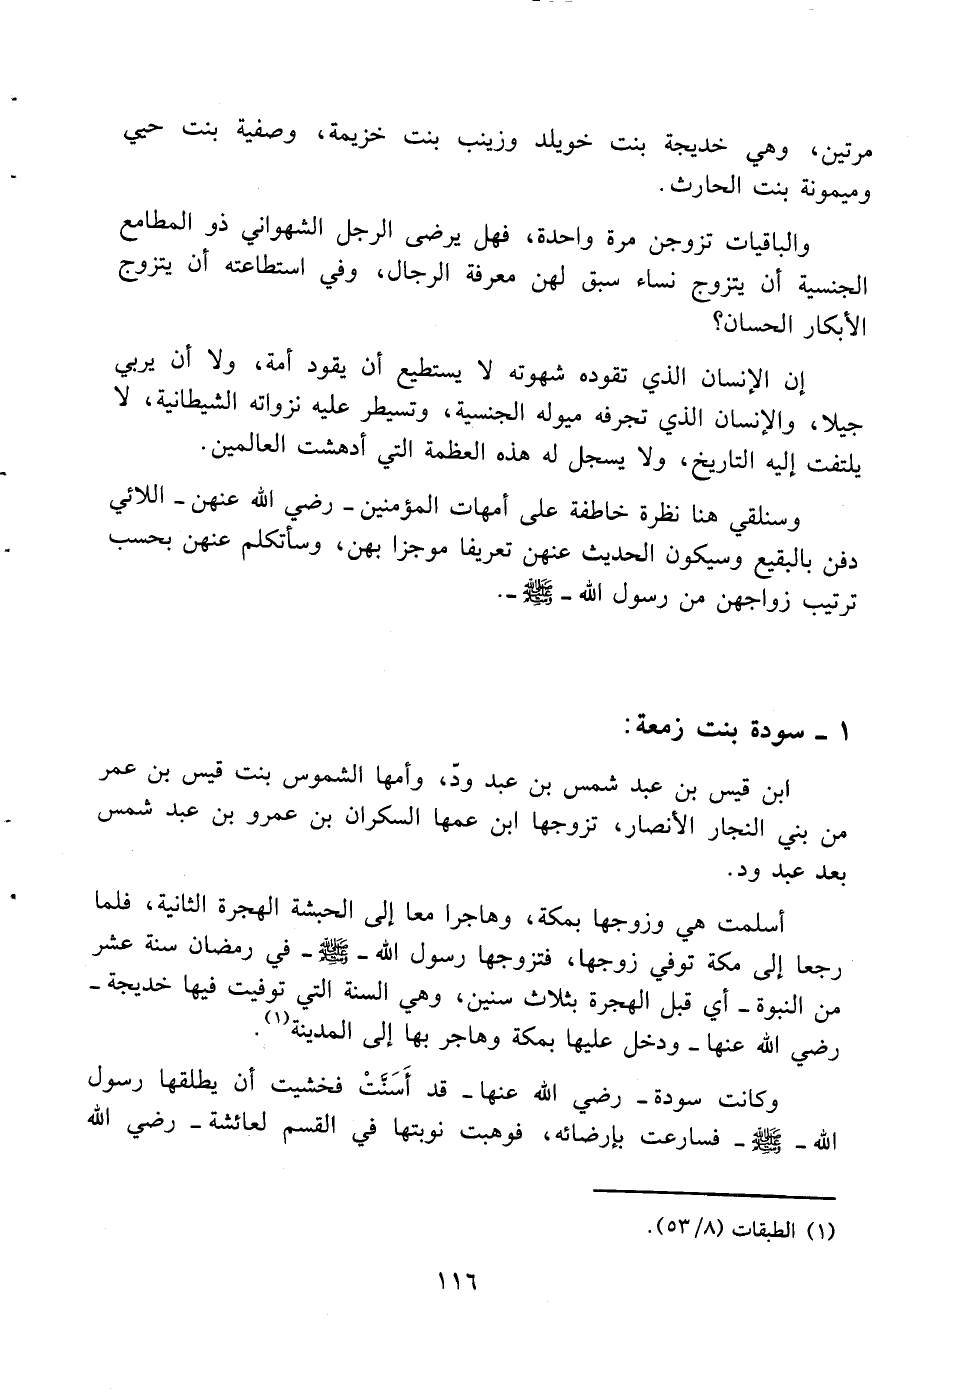 مرتين، وهي خديجة بنت خويلد وزينب بنت خزيمة، وصفية بنت حيي
وميمونة بنت الحارث.
والباقيات تزوجن مرة واحدة، فهل يرضى الرجل الشهواني ذو المطامع
الجنسية أن يتزوج نساء سبق لهن معرفة الرجال، وفي استطاعته أن يتزوج
الأبكار الحسان؟
إن الإنسان الذي تقوده شهوته لا يستطيع أن يقود أمة، ولا أن يربي
جيلا، والإنسان الذي تجرفه ميوله الجنسية، وتسيطر عليه نزواته الشيطانية، لا
يلتفت إليه التاريخ، ولا يسجل له هذه العظمة التي أدهشت العالمين.
وسنلقي هنا نظرة خاطفة على أمهات المؤمنين ـ رضي الله عنهن ـ اللائي
دفن بالبقيع وسيكون الحديث عنهن تعريفا موجزا بهن، وسأتكلم عنهن بحسب
ترتيب زواجهن من رسول الله ـ ﷺ ـ.
١ ـ سودة بنت زمعة:
ابن قيس بن عبد شمس بن عبد ودّ، وأمها الشموس بنت قيس بن عمر
من بني النجار الأنصار، تزوجها ابن عمها السكران بن عمرو بن عبد شمس
بعد عبد ود.
أسلمت هي وزوجها بمكة، وهاجرا معا إلى الحبشة الهجرة الثانية، فلما
رجعا إلى مكة توفي زوجها، فتزوجها رسول الله ـ ﷺ ـ في رمضان سنة عشر
من النبوة ـ أي قبل الهجرة بثلاث سنين، وهي السنة التي توفيت فيها خديجة ـ
رضي الله عنها ـ ودخل عليها بمكة وهاجر بها إلى المدينة(١).
وكانت سودة ـ رضي الله عنها ـ قد أَسَنَّتْ فخشيت أن يطلقها رسول
الله ـ ﷺ ـ فسارعت بإرضائه، فوهبت نوبتها في القسم لعائشة ـ رضي الله
(١) الطبقات (٥٣/٨).
١١٦